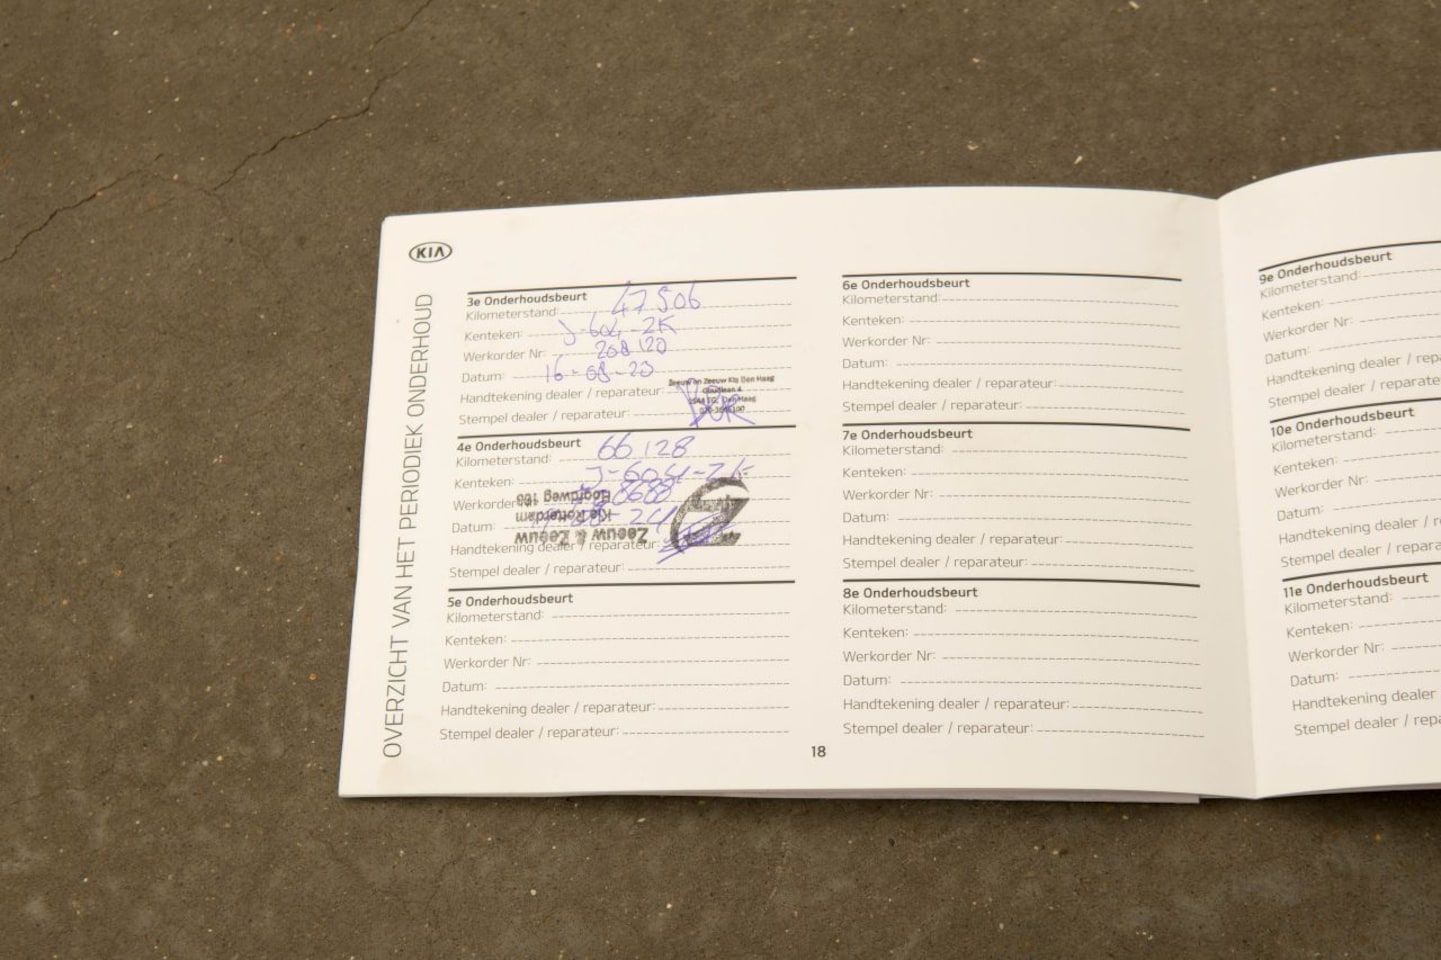 KIA
OVERZICHT VAN HET PERIODIEK ONDERHOUD
3e Onderhoudsbeurt
Kilometerstand: 47506
Kenteken: J-604-ZK
Werkorder Nr: 208120
Datum: 16-08-23
Handtekening dealer / reparateur:
Stempel dealer / reparateur:
Zeeuw en Zeeuw Kia Den Haag
4e Onderhoudsbeurt
Kilometerstand: 66128
Kenteken: J-604-ZK
Werkorder
Datum:
Handtekening dealer / reparateur:
Stempel dealer / reparateur:
Zeeuw & Zeeuw
Kia Rotterdam
5e Onderhoudsbeurt
Kilometerstand:
Kenteken:
Werkorder Nr:
Datum:
Handtekening dealer / reparateur:
Stempel dealer / reparateur:
6e Onderhoudsbeurt
Kilometerstand:
Kenteken:
Werkorder Nr:
Datum:
Handtekening dealer / reparateur:
Stempel dealer / reparateur:
7e Onderhoudsbeurt
Kilometerstand:
Kenteken:
Werkorder Nr:
Datum:
Handtekening dealer / reparateur:
Stempel dealer / reparateur:
8e Onderhoudsbeurt
Kilometerstand:
Kenteken:
Werkorder Nr:
Datum:
Handtekening dealer / reparateur:
Stempel dealer / reparateur:
18
9e Onderhoudsbeurt
Kilometerstand:
Kenteken:
Werkorder Nr:
Datum:
Handtekening dealer / rep
Stempel dealer / reparate
10e Onderhoudsbeurt
Kilometerstand:
Kenteken:
Werkorder Nr:
Datum:
Handtekening dealer / r
Stempel dealer / repara
11e Onderhoudsbeurt
Kilometerstand:
Kenteken:
Werkorder Nr:
Datum:
Handtekening dealer
Stempel dealer / repa